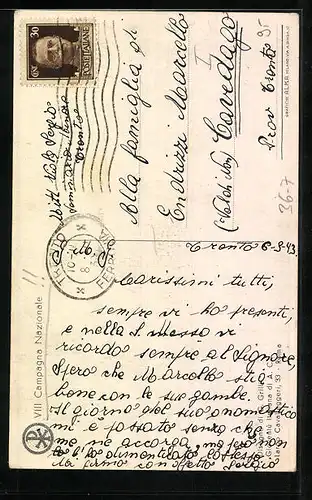 30 CENT.
POSTE ITALIANE
Alla famiglia di
Endrizzi Marcello
(Val di Non) Cavedago
Prov Trento
Mitt.
Seminario minore
Trento
TRENTO
FERROVIA
36-7
Trento 6-3-43
Carissimi tutti,
sempre vi ho presenti,
e nella S. messa vi
ricordo sempre al Signore,
Spero che Marcello stia
bene con le sue gambe.
Il giorno del suo onomastico
mi è passato senza che
me ne accorga, ma però non
l'ho dimenticato lo stesso
Mi firmo con affetto Sergio
VIII Campagna Nazionale